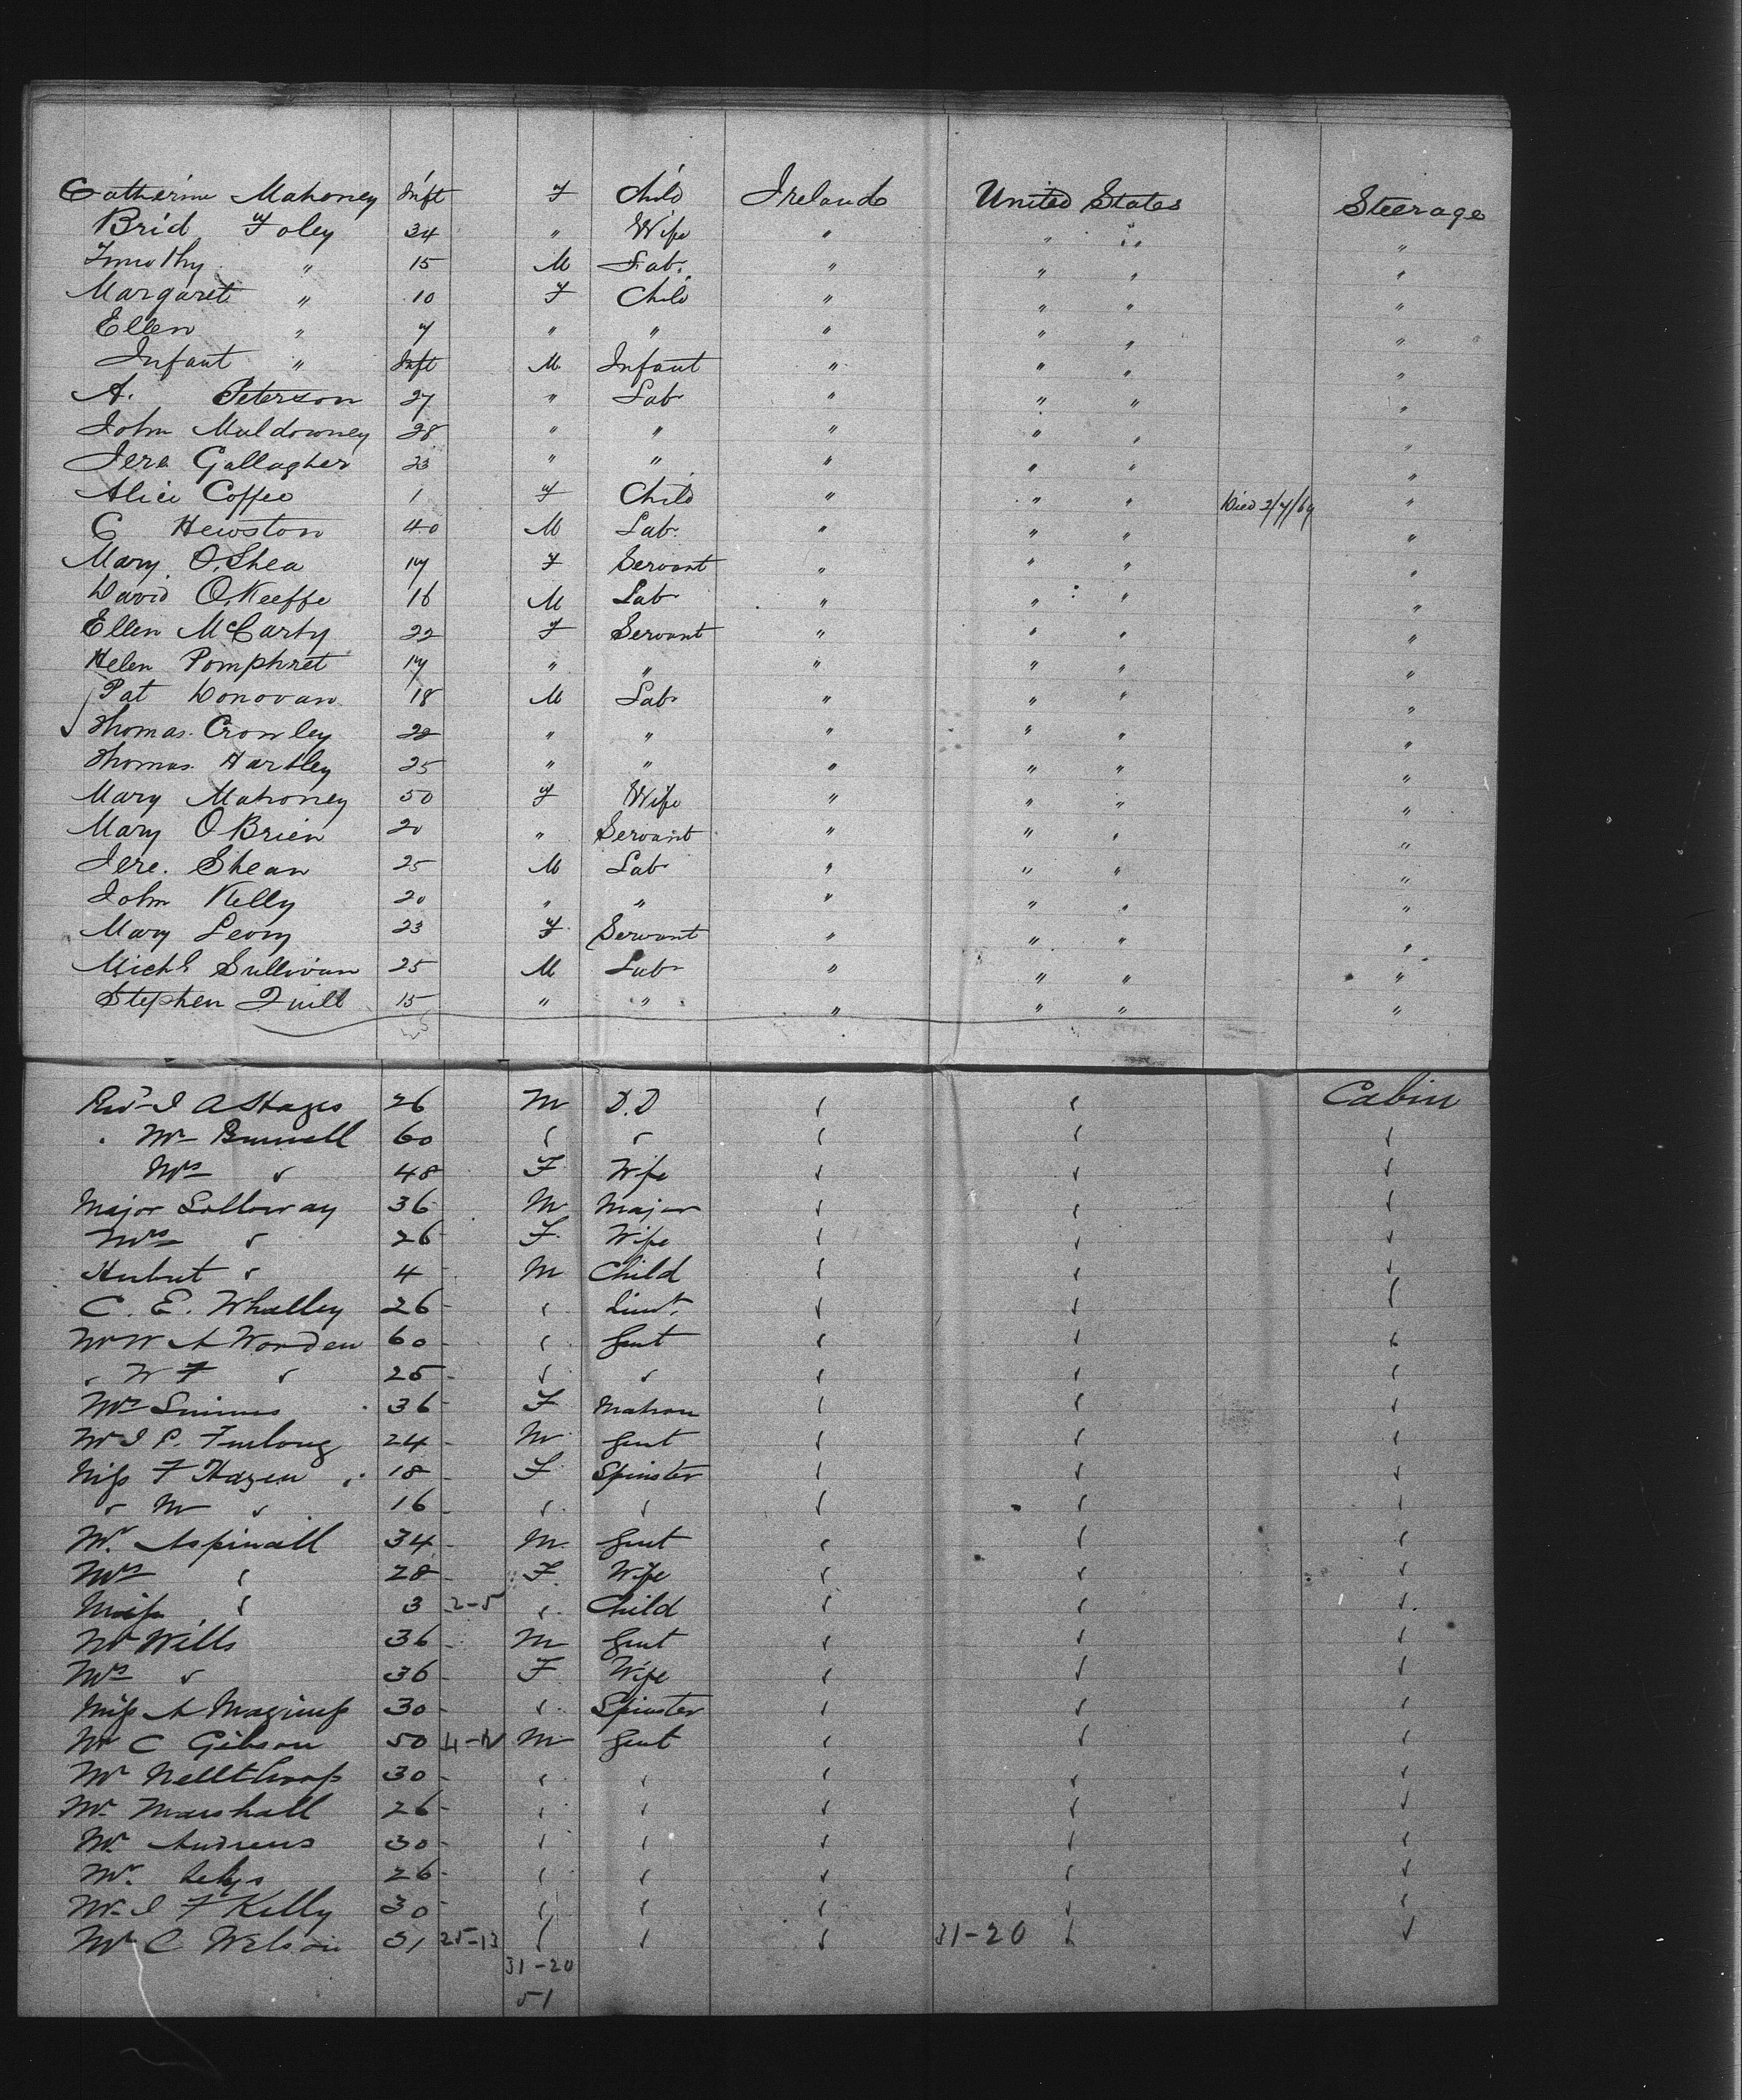 Catherine Mahoney Inft F Child Ireland United States Steerage
Brid Foley 34 " Wife " " " "
Timothy " 15 M Lab. " " " "
Margaret " 10 F Child " " " "
Ellen " 7 " " " " " "
Infant " Inft M Infant " " " "
A. Peterson 27 " Lab " " " "
John Muldowney 28 " " " " " "
Jere Gallagher 23 " " " " " "
Alice Coffee 1 F Child " " " Died 2/7/69 "
C Hewston 40 M Lab. " " " "
Mary O'Shea 17 F Servant " " " "
David O'Keeffe 16 M Lab " " " "
Ellen McCarty 22 F Servant " " " "
Helen Pomphret 17 " " " " " "
Pat Donovan 18 M Lab " " " "
Thomas Crowley 22 " " " " " "
Thomas Hartley 25 " " " " " "
Mary Mahoney 50 F Wife " " " "
Mary O Brien 20 " Servant " " " "
Jere. Shean 25 M Lab " " " "
John Kelly 20 " " " " " "
Mary Leory 23 F Servant " " " "
Michl Sullivan 25 M Lab " " " "
Stephen Quill 15 " " " " " "
Revd J A 26 M D.D " " Cabin
" Mr 60 " " " " "
Mrs " 48 F Wife " " "
Major 36 M Major " " "
Mrs " 26 F Wife " " "
Hubert " 4 M Child " " "
C. E. Whalley 26 " Lieut. " " "
Mr W A Worden 60 " Gent " " "
" W F " 25 " " " " "
Mrs 36 F Matron " " "
Mr J P. Furlong 24 M Gent " " "
Miss F Hazen 18 F Spinster " " "
" M " 16 " " " " "
Mr. Aspinall 34 M Gent " " "
Mrs " 28 F Wife " " "
Miss " 3 2-5 " Child " " "
Mr Wills 36 M Gent " " "
Mrs " 36 F Wife " " "
Miss A 30 " Spinster " " "
Mr C Gibson 50 M Gent " " "
Mr 30 " " " " "
Mr. Marshall 26 " " " " "
Mr. Andrews 30 " " " " "
Mr. 26 " " " " "
Mr J F Kelly 30 " " " " "
Mr C 51 25-13 " " " 31-20 " "
31-20
51